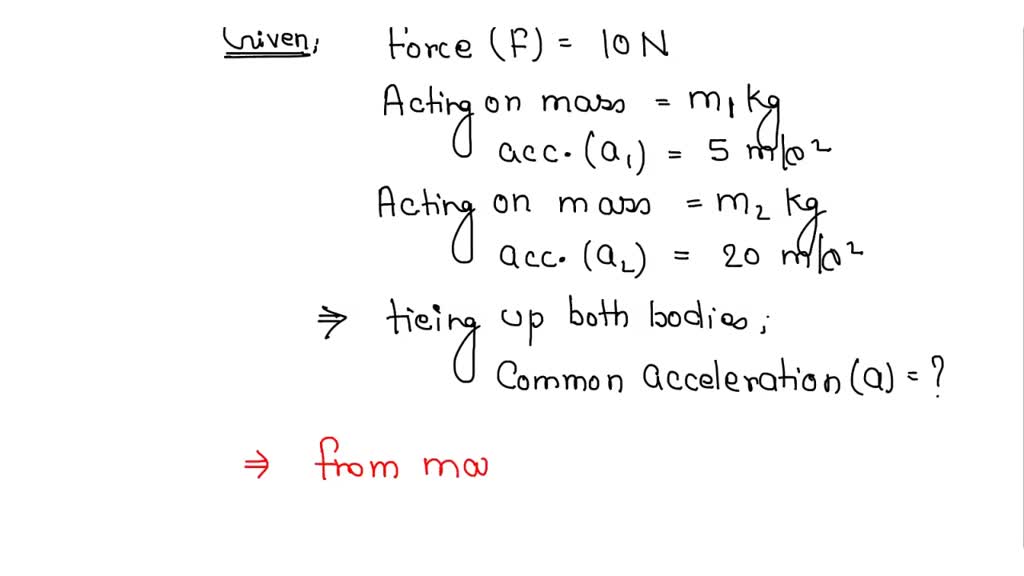 Given; Force (F) = 10 N
Acting on mass = m₁ kg
acc. (a₁) = 5 m/s²
Acting on mass = m₂ kg
acc. (a₂) = 20 m/s²
⇒ tieing up both bodies;
Common acceleration (a) = ?
⇒ from ma